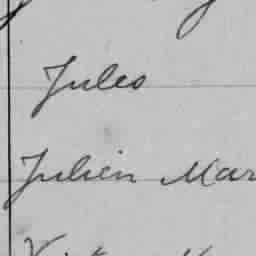 Jules
Julien Mar